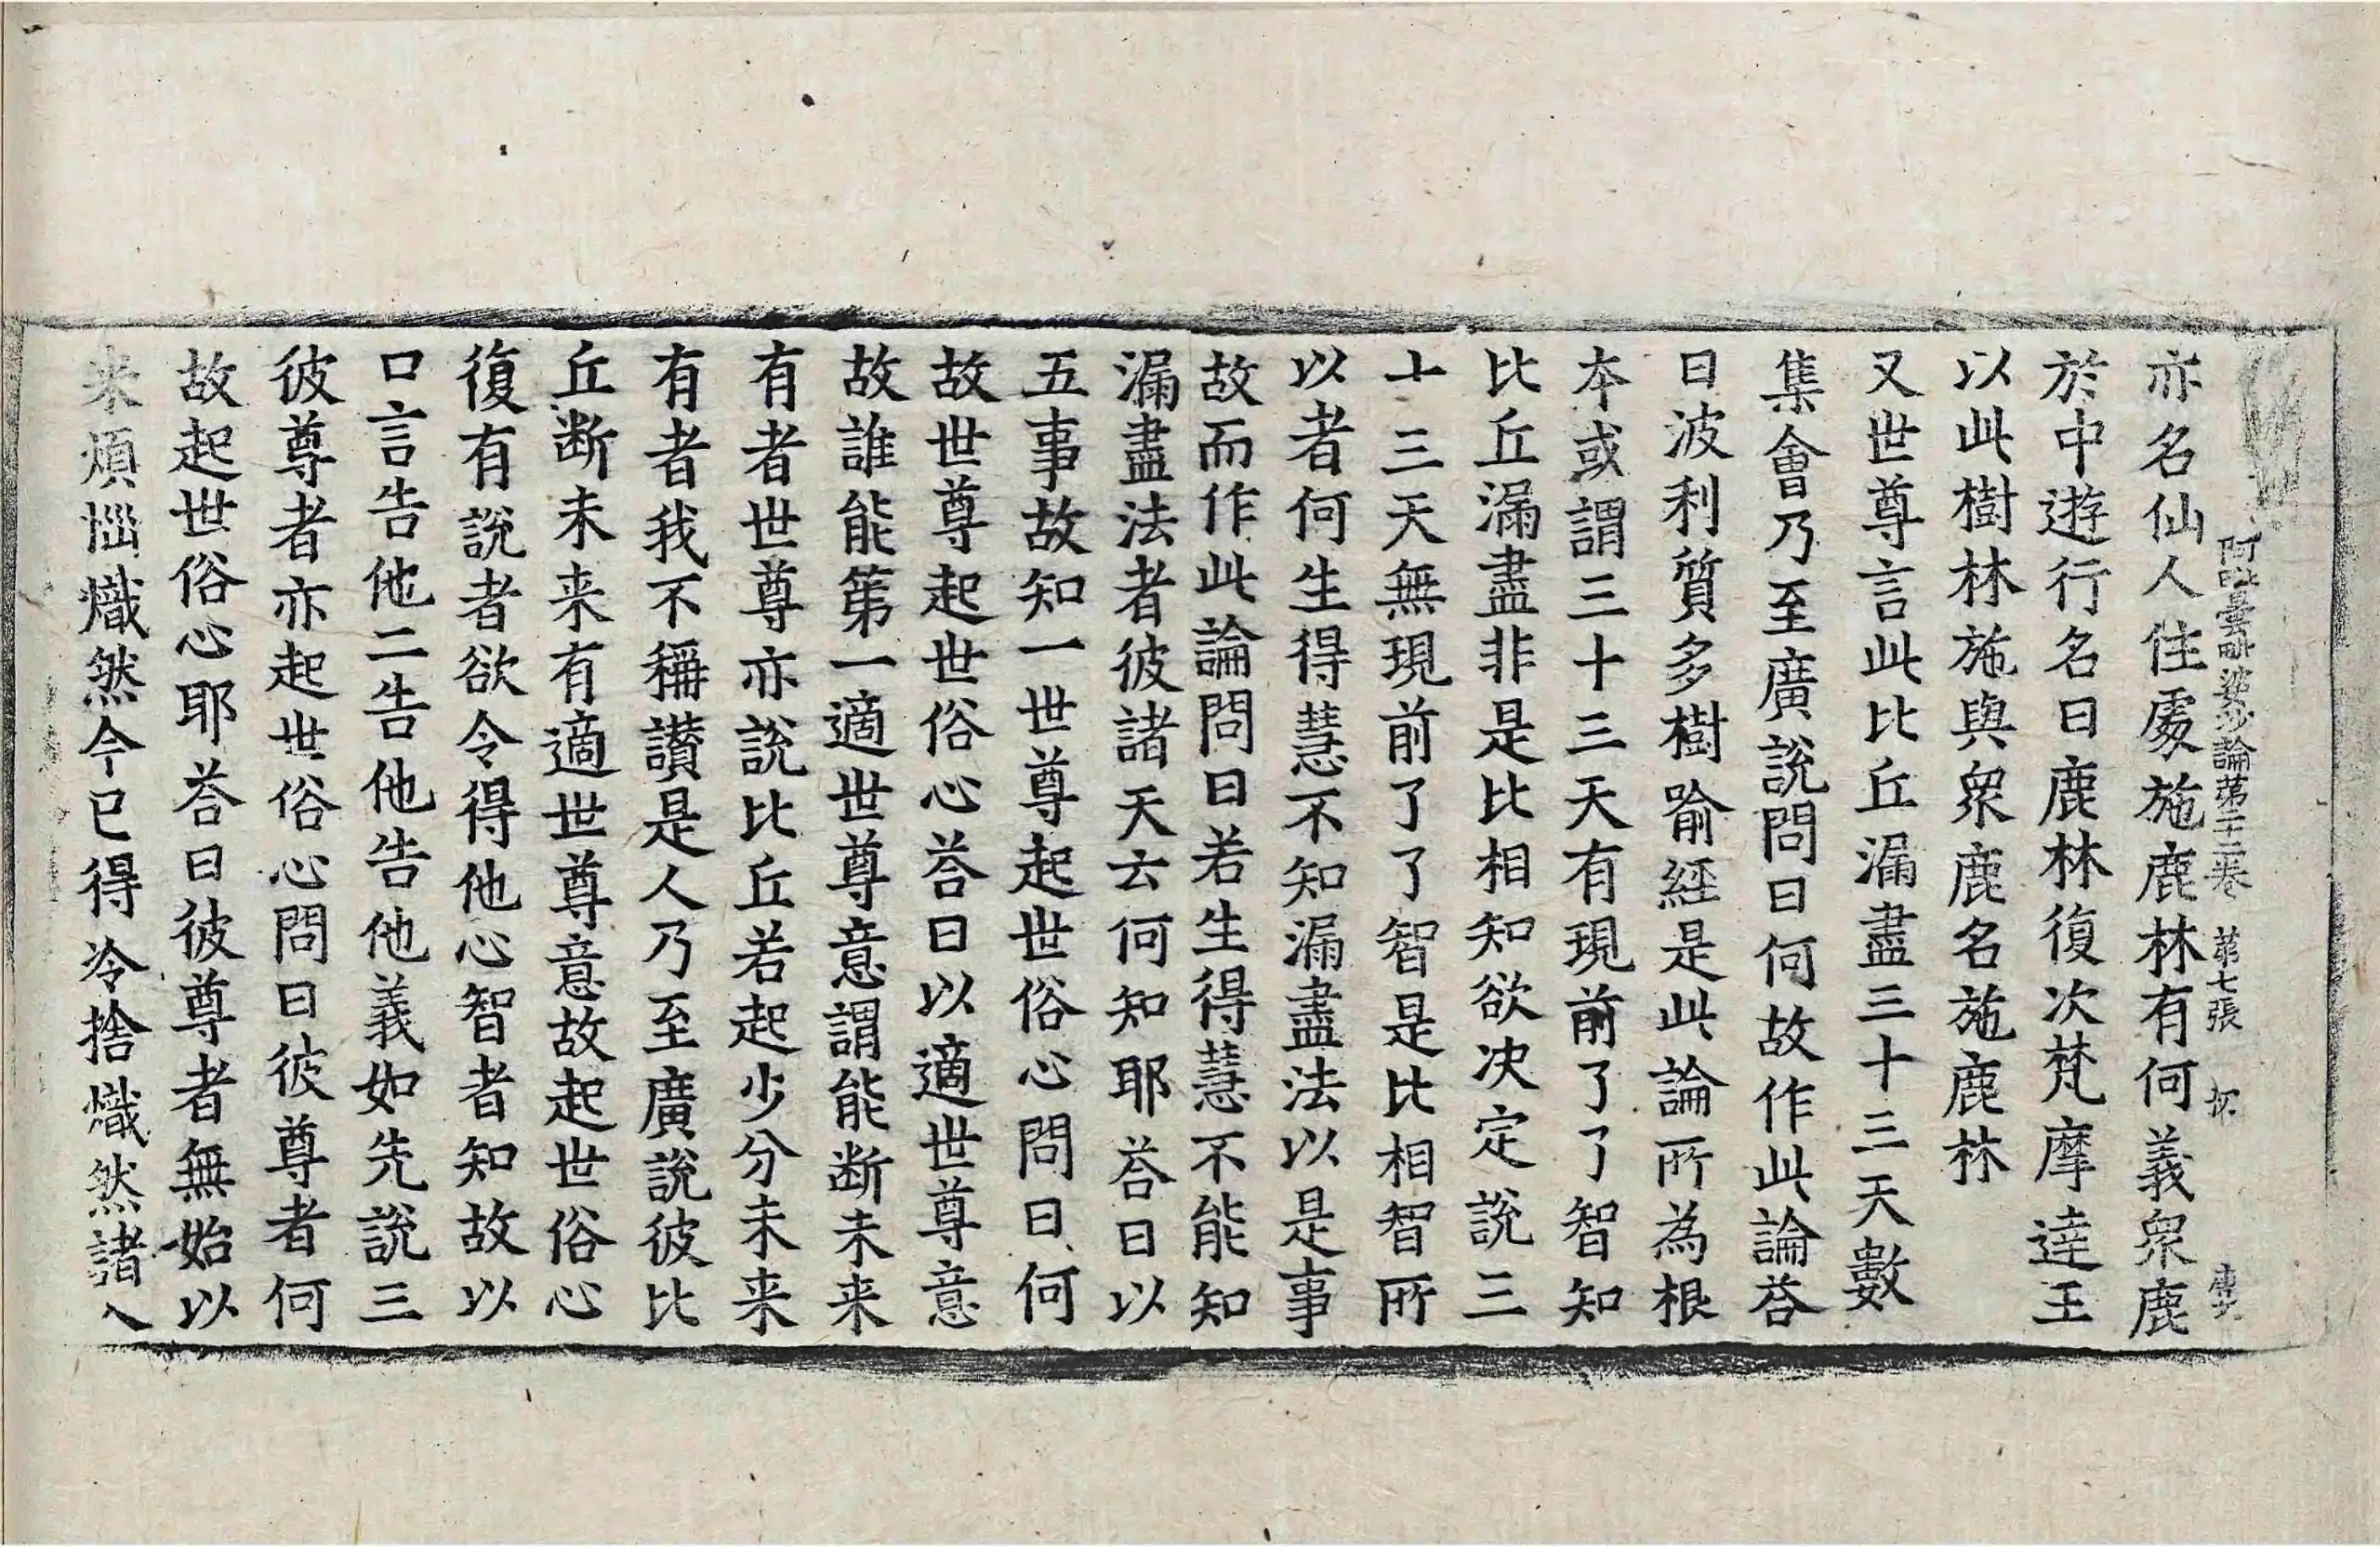 阿毗曇毗婆沙論第二十二卷 第七張
亦名仙人住處施鹿林有何義衆鹿
於中遊行名曰鹿林復次梵摩達王
以此樹林施與衆鹿名施鹿林
又世尊言此比丘漏盡三十三天數
集會乃至廣說問曰何故作此論荅
曰波利質多樹喻經是此論所為根
本或謂三十三天有現前了了智知
比丘漏盡非是比相知欲决定說三
十三天無現前了了智是比相智所
以者何生得慧不知漏盡法以是事
故而作此論問曰若生得慧不能知
漏盡法者彼諸天云何知耶荅曰以
五事故知一世尊起世俗心問曰何
故世尊起世俗心荅曰以適世尊意
故誰能第一適世尊意謂能断未来
有者世尊亦說比丘若起少分未来
有者我不稱讃是人乃至廣說彼比
丘断未来有適世尊意故起世俗心
復有說者欲令得他心智者知故以
口言告他二告他告他義如先說三
彼尊者亦起世俗心問曰彼尊者何
故起世俗心耶荅曰彼尊者無始以
来煩惱熾然今已得冷捨熾然諸入